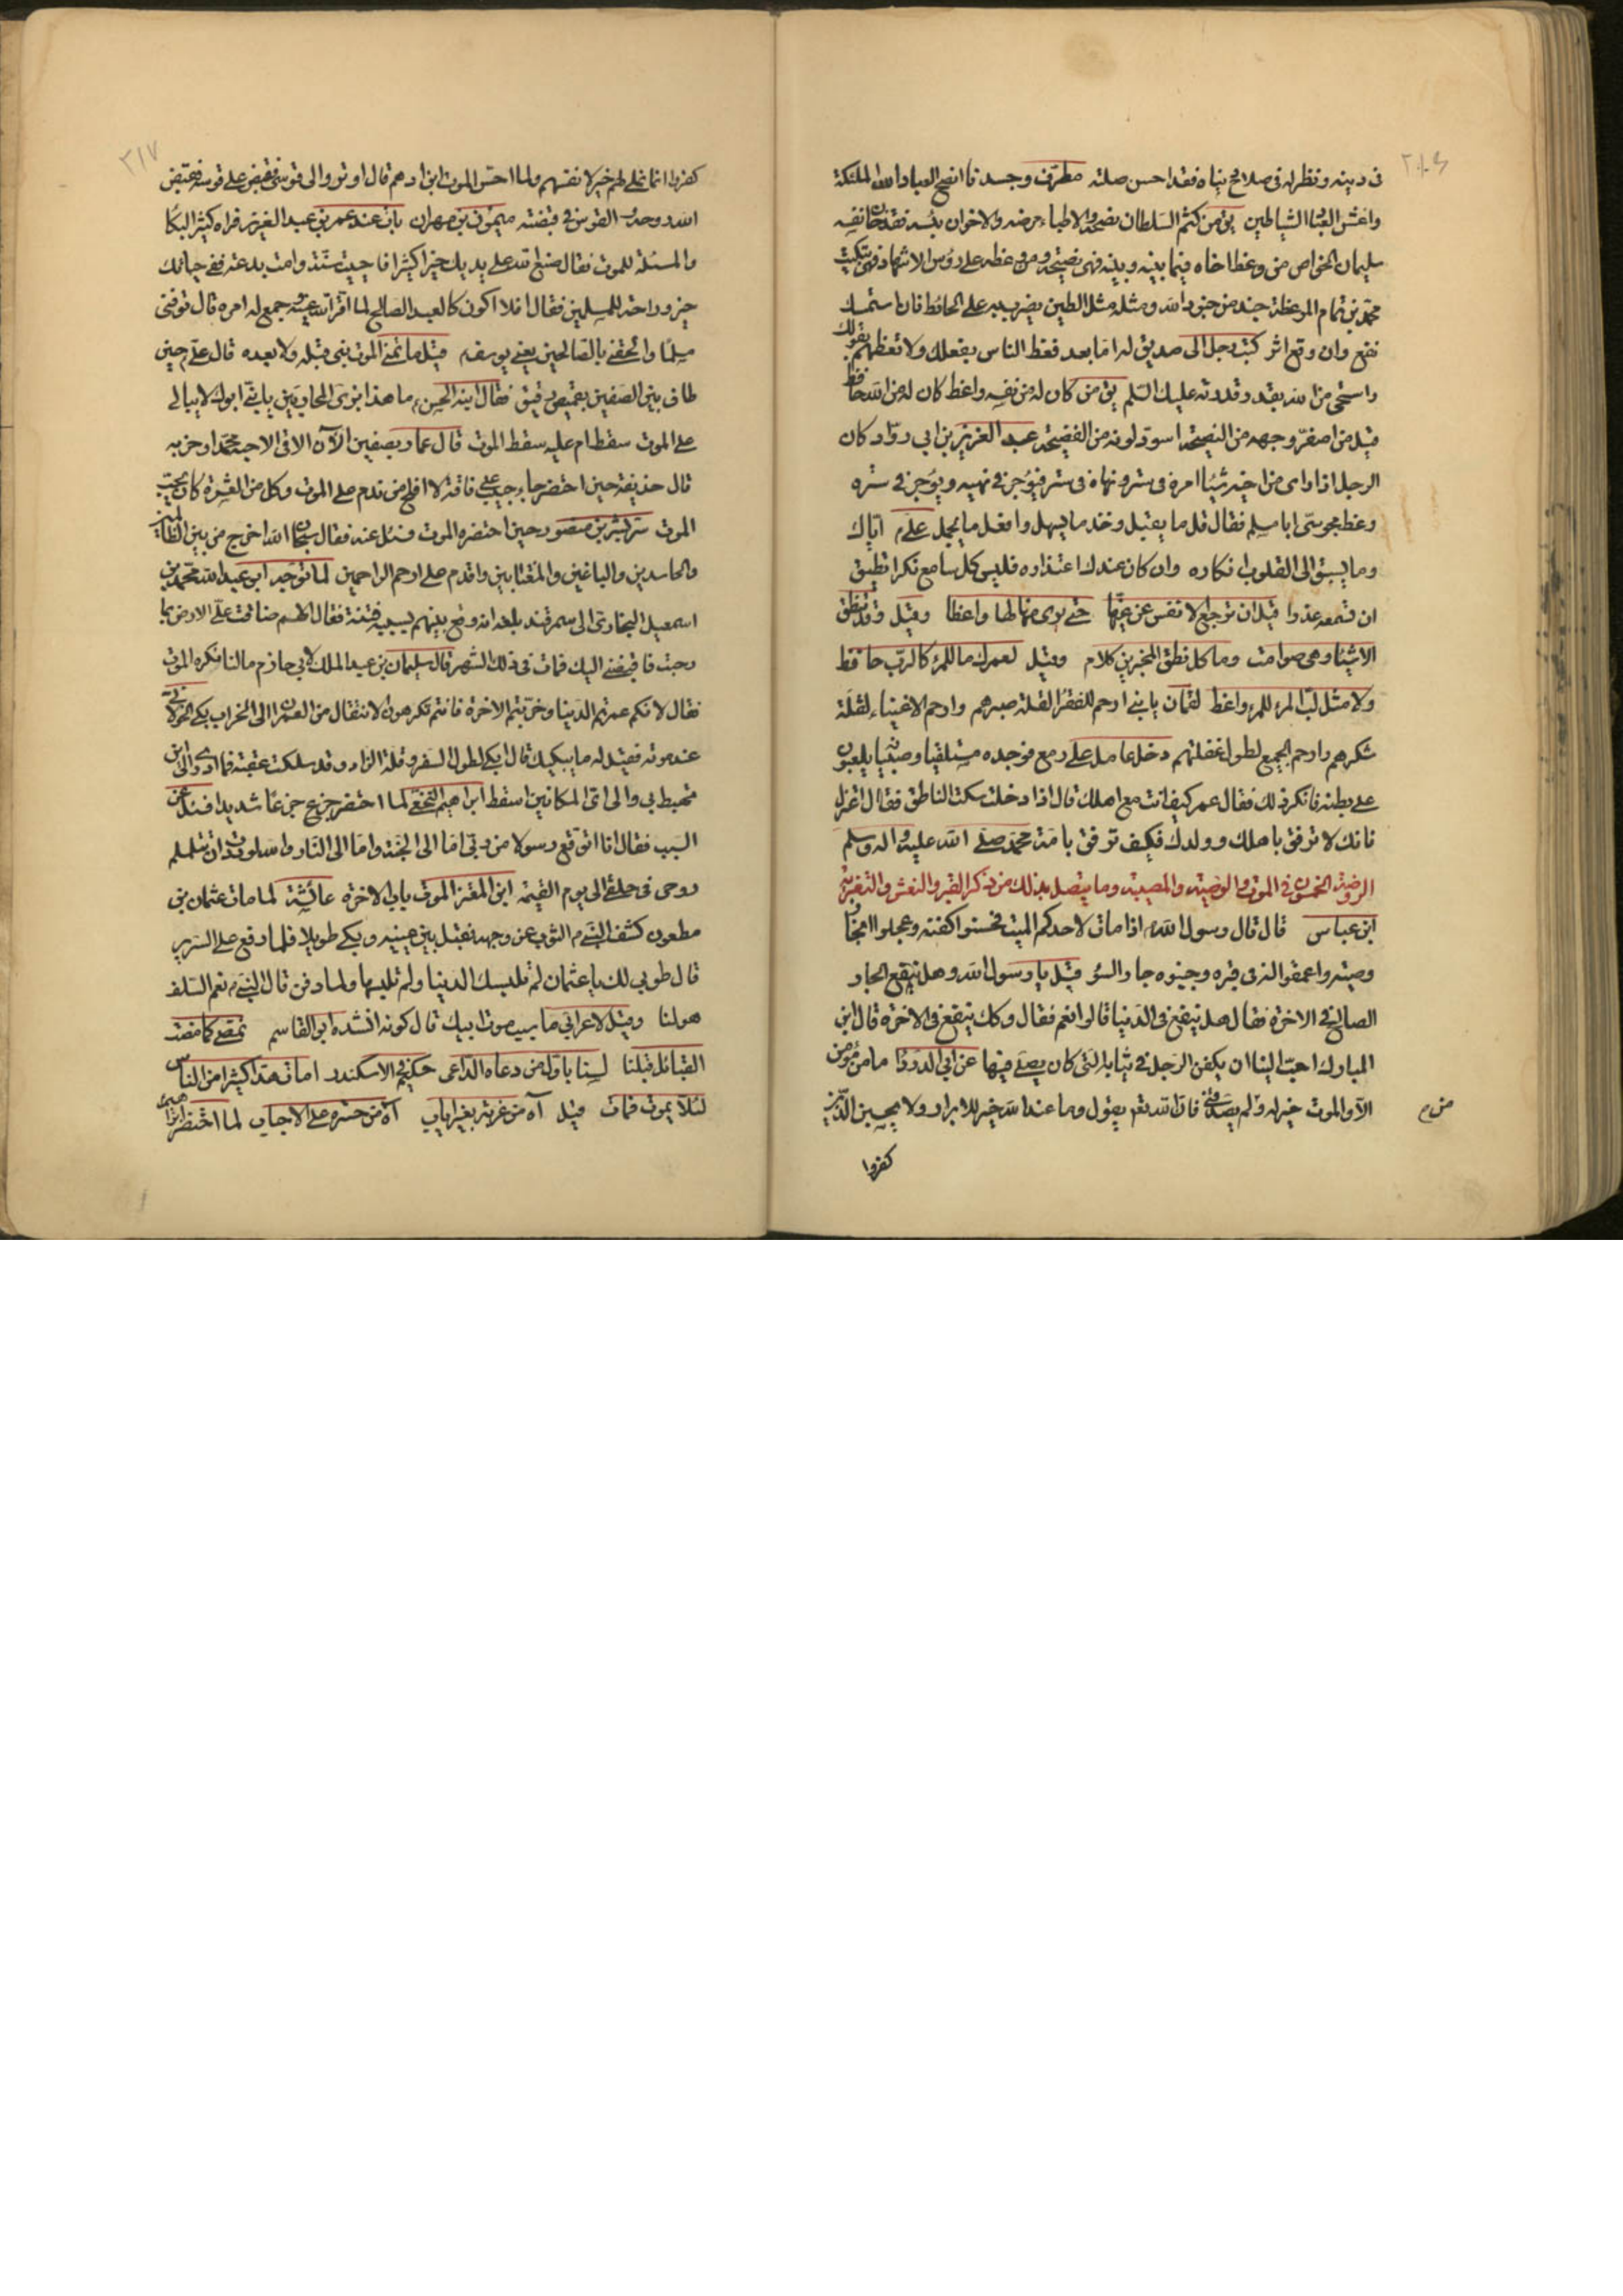 في دينه ونظر له في صلاح دنياه فقد احسن صلته مطرف وجدنا انصح العباد لله الملئكة
واغش العباد الشياطين يق من كتم السلطان نصحه والاطباء مرضه والاخوان بثه فقد خان نفسه
سليمان الخواص من وعظ اخاه فيما بينه وبينه فهي نصيحة ومن وعظه على رؤس الاشهاد فهي تبكيت
محمد بن تمام الموعظة جند من جنود الله ومثله مثل الطين يضرب به على الحائط فان استمسك
نفع وان وقع اثر كتب رجل الى صديق له اما بعد فعظ الناس بفعلك ولا تعظهم بقولك
واستحي من الله بقدر قدرته عليك السلم يق من كان له من نفسه واعظ كان له من الله حافظ
قيل من اصفر وجهه من النصيحة اسود لونه من الفضيحة عبد العزيز بن ابي رواد كان
الرجل اذا راى من اخيه شيئا امره في ستر ونهاه في ستر فيؤجر في نهيه ويؤجر في ستره
وعظ مجوسي ابا مسلم فقال قل ما يقبل وخذ ما يسهل وافعل ما يجمل علي م اياك
وما يسبق الى القلوب انكاره وان كان عندك اعتذاره فليس كل سامع نكرا تطيق
ان تسمعه عذرا قيل لن ترجع الانفس عن غيها حتى يرى منها لها واعظا وقيل وقد تنطق
الاشياء وهي صوامت وما كل نطق المخبرين كلام وقيل لعمرك ما للمرء كالرب حافظ
ولا مثل لب المرء للمرء واعظ لقمان يا بني ارحم الفقراء لقلة صبرهم وارحم الاغنياء لقلة
شكرهم وارحم الجميع لطول غفلتهم دخل عامل على عمر فوجده مستلقيا وصبيانه يلعبون
على بطنه فانكر ذلك فقال عمر كيف انت مع اهلك قال اذا دخلت سكت الناطق فقال اعتزل
فانك لا ترفق باهلك وولدك فكيف ترفق بامة محمد صلى الله عليه واله وسلم
الروضة الخمسون في الموت والوصية والمصيبة وما يتصل بذلك من ذكر القبر والنعش والتعزية
ابن عباس قال قال رسول الله ص اذا مات لاحدكم الميت فحسنوا كفنه وعجلوا انجاز
وصيته واعمقوا له في قبره وجنبوه جار السوء قيل يا رسول الله وهل ينفع الجار
الصالح في الاخرة فقال هل ينفع في الدنيا قالوا نعم فقال وكك ينفع في الاخرة قال ابن
المبارك احب الينا ان يكفن الرجل في ثيابه التي كان يصلي فيها عن ابي الدرداء ما من مؤمن
الا والموت خير له ولم يصدقني فان الله تع يقول وما عند الله خير للابرار ولا يحسبن الذين
من م
كفروا
كفروا انما نملي لهم خير لانفسهم ولما احس الموت ابن ادهم قال اوتروا لي قوسي فقبض على قوسه فقبض
الله روحه والقوس في قبضته ميمون بن مهران بات عند عمر بن عبد العزيز فراه كثير البكاء
والمسئلة للموت فقال صنع الله على يديك خيرا كثيرا احييت سننا وامت بدعة ففي حياتك
خير وراحة للمسلمين فقال افلا اكون كالعبد الصالح لما اقر الله عينه وجمع له امره قال توفني
مسلما والحقني بالصالحين يعني يوسف م قيل ما تمنى الموت نبي قبله ولا بعده قال علي م حين
طاف بين الصفين بقميص رقيق فقال ابنه الحسن م ما هذا بزي المحاربين يا بني ابوك لا يبالي
على الموت سقط ام عليه سقط الموت قال عمار بصفين الآن الاقي الاحبة محمدا وحزبه
قال حذيفة حين احتضر جاء حبيب على فاقة لا افلح من ندم على الموت وكل من العشرة كان يحب
الموت سر بشر بن منصور حين احتضره الموت فسئل عنه فقال سبحان الله اخرج من بين الظالمين
والحاسدين والباغين والمغتابين واقدم على ارحم الراحمين لما توجه ابو عبد الله محمد بن
اسمعيل البخاري الى سمرقند بلغه انه وقع بينهم بسببه فتنة فقال اللهم ضاقت علي الارض بما
رحبت فاقبضني اليك فمات في ذلك الشهر قال سليمان بن عبد الملك لابي حازم ما لنا نكره الموت
فقال لانكم عمرتم الدنيا وخربتم الاخرة فانتم تكرهون الانتقال من العمران الى الخراب بكى الخولاني
عند موته فقيل له ما يبكيك قال ابكي لطول السفر وقلة الزاد وقد سلكت عقبة فما ادري الى اين
تهبط بي والى اي المكانين اسقط ابراهيم النخعي لما احتضر جزع جزعا شديدا فسئل عن
السبب فقال انا اتوقع رسولا من ربي اما الى الجنة واما الى النار والله لوددت ان تتلجلج
روحي في حلقي الى يوم القيمة ابن المعتز الموت باب الاخرة عائشة لما مات عثمان بن
مظعون كشف النبي م الثوب عن وجهه فقبل بين عينيه وبكى طويلا فلما رفع على السرير
قال طوبى لك يا عثمان لم تلبسك الدنيا ولم تلبسها ولما دفن قال النبي م نعم السلف
هو لنا وقيل لاعرابي ما سبب موت ابيك قال كونه انشده ابو القاسم نمضي كما مضت
القبائل قبلنا لسنا باول من دعاه الداعي حكيم الاسكندر امات هذا كثيرا من الناس
لئلا يموت فمات قيل آه من غربة بغير اياب آه من حسرة على الاحباب لما احتضر ابراهيم